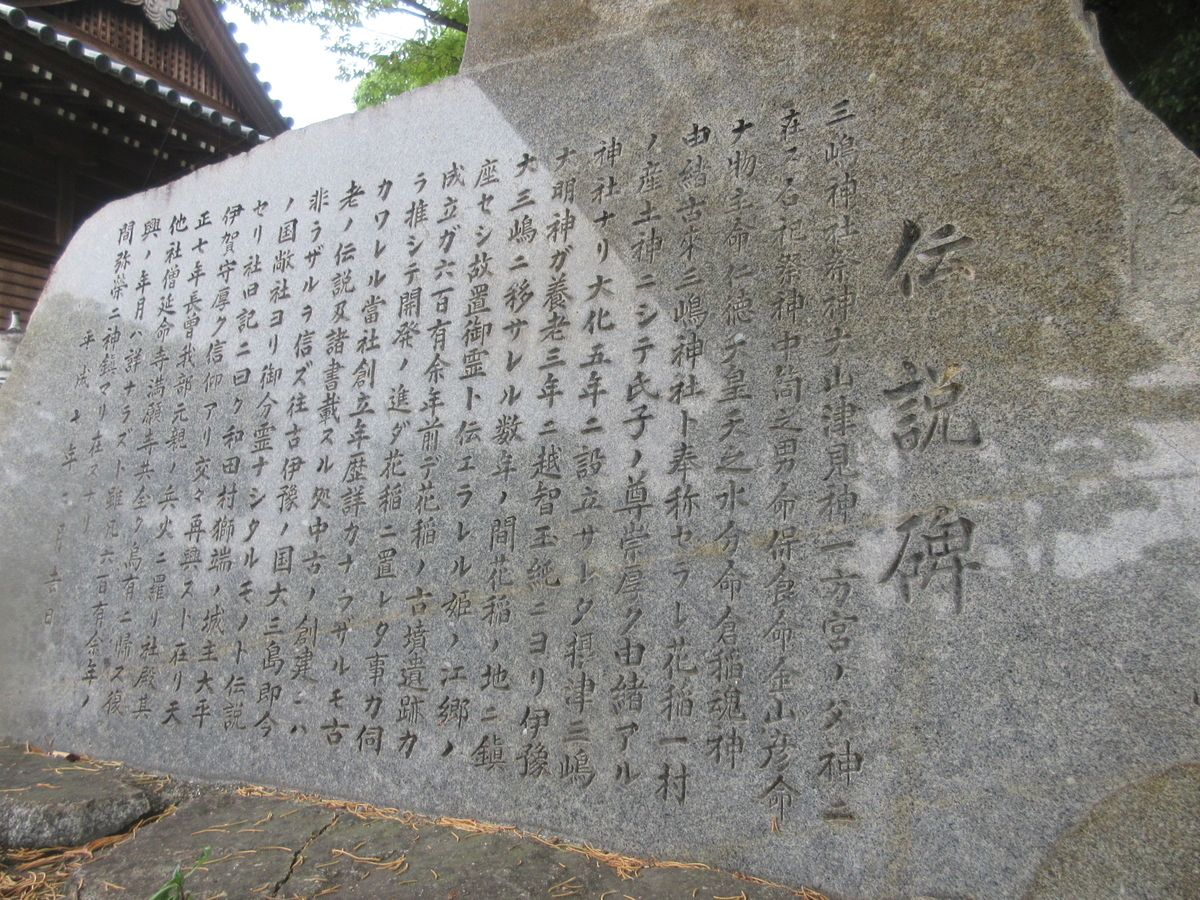 伝説碑
三嶋神社祭神大山津見神一方宮ノダ神ニ
在ス石祀祭神中筒之男命保食命金山彦命
大物主命仁徳天皇天之水分命倉稲魂神
由緒古来三嶋神社ト奉称セラレ花稲一村
ノ産土神ニシテ氏子ノ尊崇厚ク由緒アル
神社ナリ大化五年ニ設立サレタ摂津三嶋
大明神ガ養老三年ニ越智玉純ニヨリ伊豫
大三嶋ニ移サレル数年ノ間花稲ノ地ニ鎮
座セシ故置御霊ト伝エラレル姫ノ江郷ノ
成立ガ六百有余年前デ花稲ノ古墳遺跡カ
ラ推シテ開発ノ進ダ花稲ニ置レタ事カ伺
カワレル當社創立年歴詳カナラザルモ古
老ノ伝説及諸書載スル処中古ノ創建ニハ
非ラザルヲ信ズ往古伊豫ノ国大三島即今
ノ国敞社ヨリ御分霊ナシタルモノト伝説
セリ社旧記ニ曰ク和田村獅端ノ城主大平
伊賀守厚ク信仰アリ交々再興スト在リ天
正七年長曽我部元親ノ兵火ニ羅リ社殿其
他社僧延命寺満願寺共全ク烏有ニ帰ス復
興ノ年月ハ詳ナラズト雖凡六百有余年ノ
間弥榮ニ神鎮マリ在スナリ
平成十年二月吉日